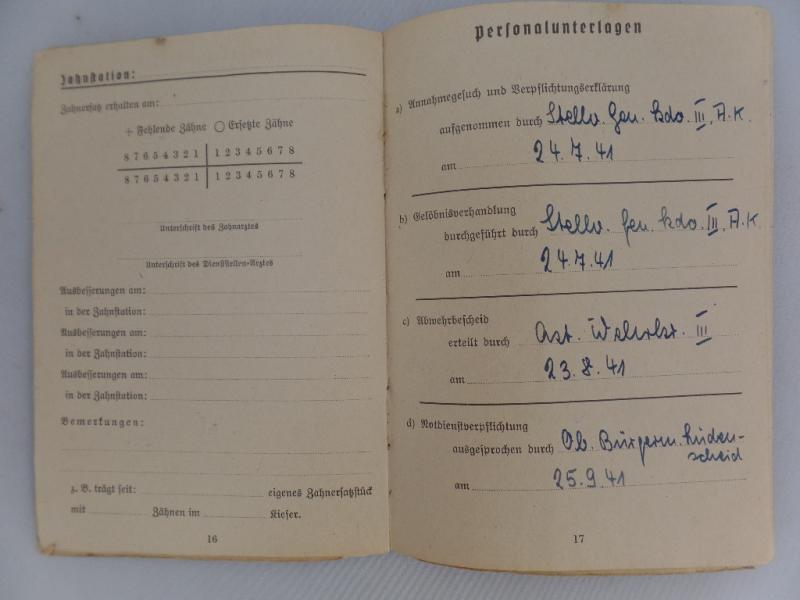 Zahnstation:
Zahnersatz erhalten am:
+ Fehlende Zähne ○ Ersetzte Zähne
8 7 6 5 4 3 2 1 | 1 2 3 4 5 6 7 8
8 7 6 5 4 3 2 1 | 1 2 3 4 5 6 7 8
Unterschrift des Zahnarztes
Unterschrift des Dienststellen-Arztes
Ausbesserungen am:
in der Zahnstation:
Ausbesserungen am:
in der Zahnstation:
Ausbesserungen am:
in der Zahnstation:
Bemerkungen:
z. B. trägt seit: eigenes Zahnersatzstück
mit Zähnen im Kiefer.
16
Personalunterlagen
a) Annahmegesuch und Verpflichtungserklärung
aufgenommen durch Stellv. Gen. Kdo. III, A.K.
am 24.7.41
b) Gelöbnisverhandlung
durchgeführt durch Stellv. Gen. Kdo. III, A.K
am 24.7.41
c) Abwehrbescheid
erteilt durch Ast. III
am 23.8.41
d) Notdienstverpflichtung
ausgesprochen durch Ob. Bürgerm. Lüden-
scheid
am 25.9.41
17